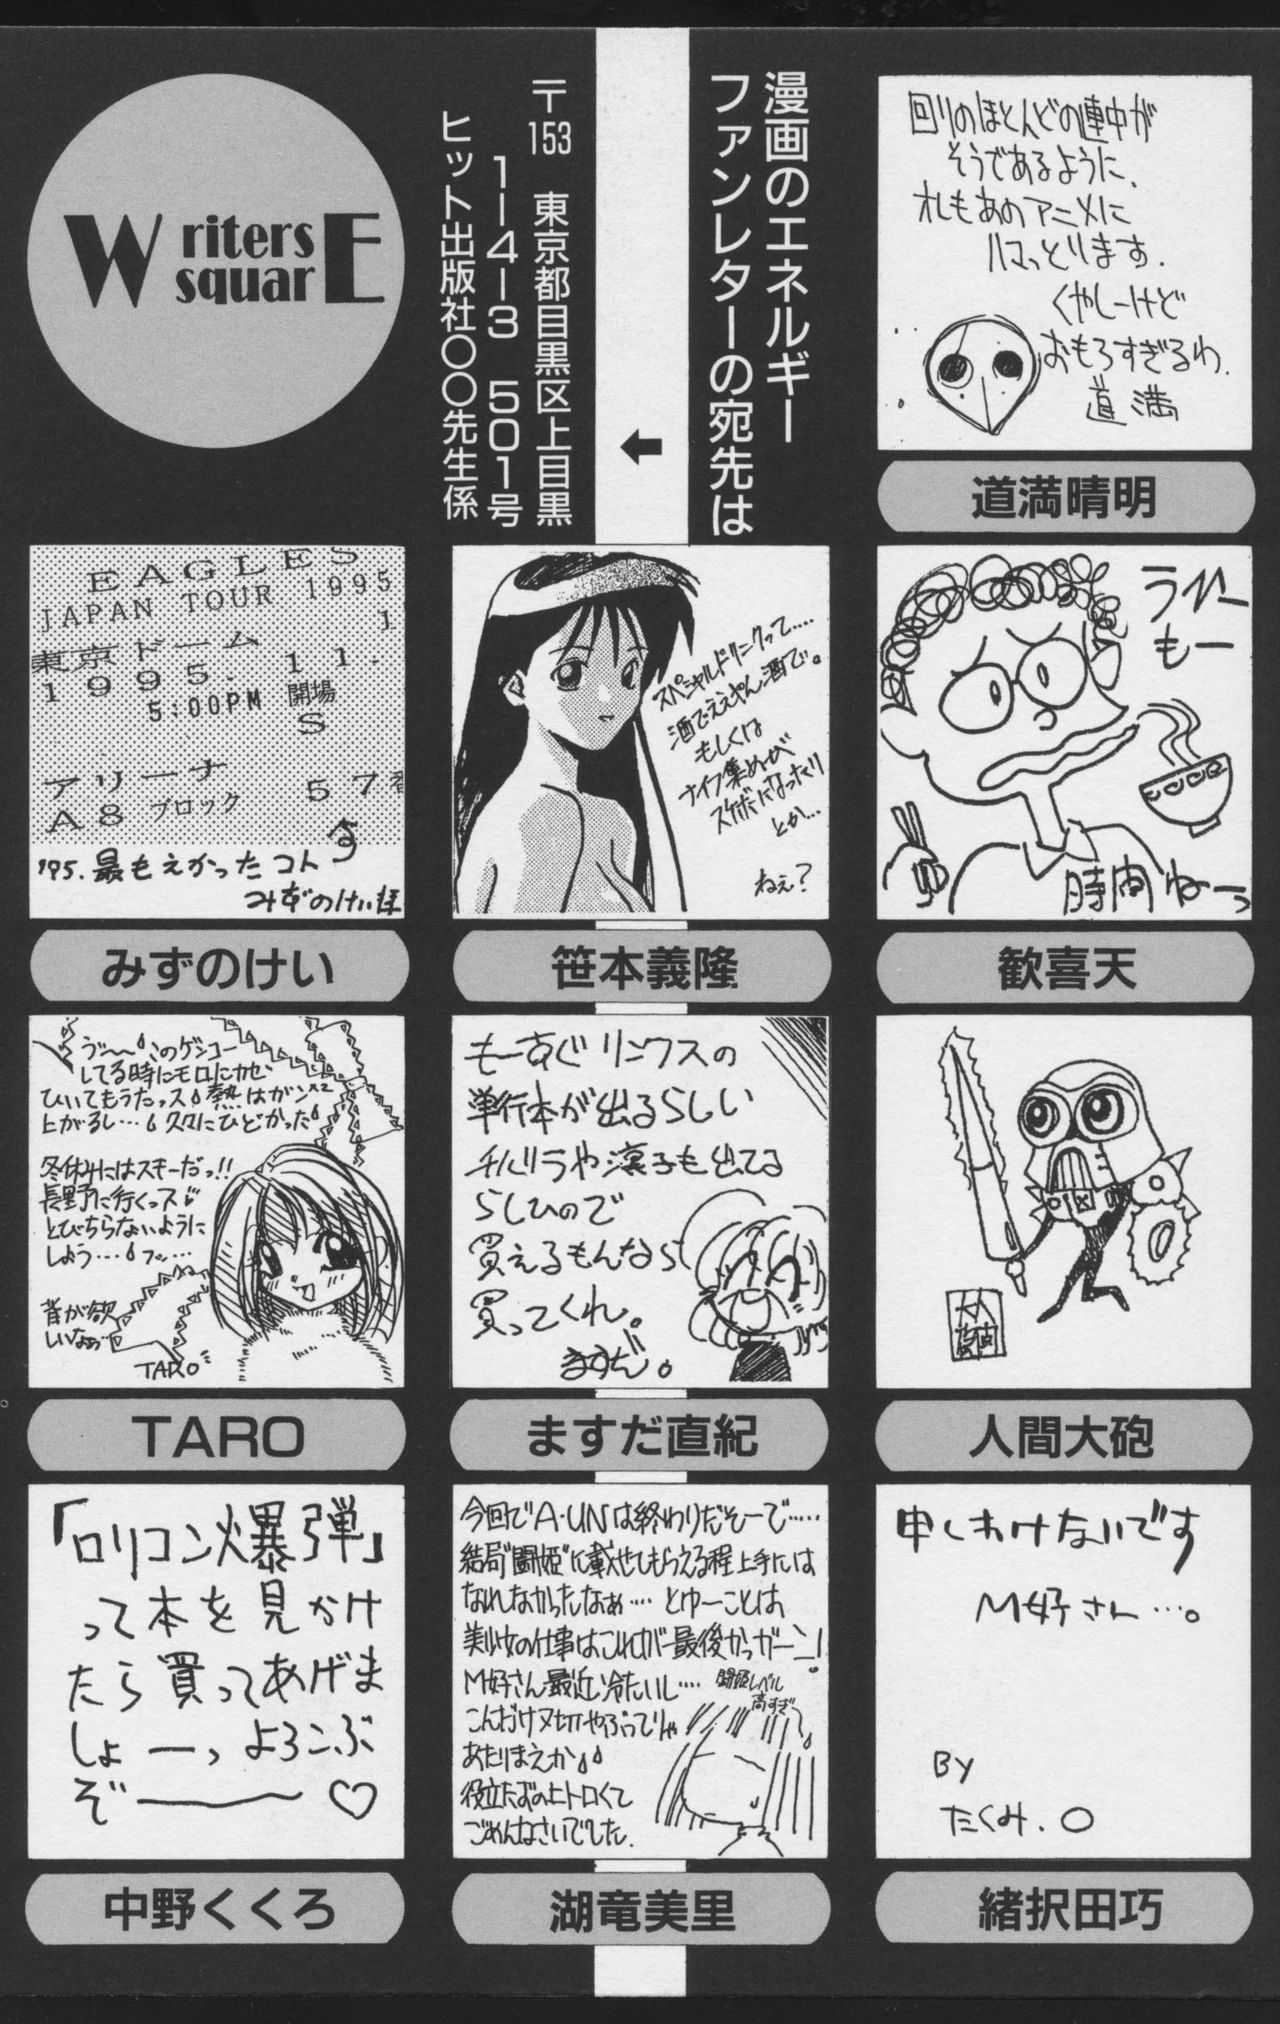 回りのほとんどの連中が
そうであるように、
オレもあのアニメに
ハマっとります.
くやしーけど
おもろすぎるわ.
道満
道満晴明
漫画のエネルギー
ファンレターの宛先は
〒153 東京都目黒区上目黒
1-4-3 501号
ヒット出版社〇〇先生係
Writers
squarE
うめー
もー
時間ねーっ
歓喜天
スペシャルドリンクって....
酒でええやん酒で。
もしくは
ナイフ集めが
スケボになったり
とか...
ねぇ?
笹本義隆
EAGLES
JAPAN TOUR 1995
東京ドーム 1
1995. 11.
5:00PM 開場
S
アリーナ 57番
A8 ブロック
'95.最もよかったコト
みずのけい様
みずのけい
人間大砲
もーすぐリンクスの
単行本が出るらしい
チバリラや凛子も出てる
らしひので
買えるもんなら
買ってくれ。
ますだ。
ますだ直紀
う〜このゲンコー
してる時にモロにカゼ
ひいてもうたっス 熱はガンx2
上がるし… 久々にひどかった
冬休みにはスキーだっ!!
長野に行くっス♡
とびちらないように
しよう…フッ…
背が欲
しいなあ
TARO
TARO
申しわけないです
M好さん…。
By
たくみ.〇
緒択田巧
今回でA・UNは終わりだそーで……
結局"闘姫"に載せてもらえる程上手には
なれなかったなぁ…. とゆーことは
美少女の仕事はこれが最後かっガーン!
M好さん最近冷たいし….
闘姫レベル
高すぎ
こんだけ〆切やぶってりゃ
あたりまえか
役立たずの上トロくて
ごめんなさいでした.
湖竜美里
「ロリコン爆弾」
って本を見かけ
たら買ってあげま
しょーっよろこぶ
ぞ――♡
中野くくろ